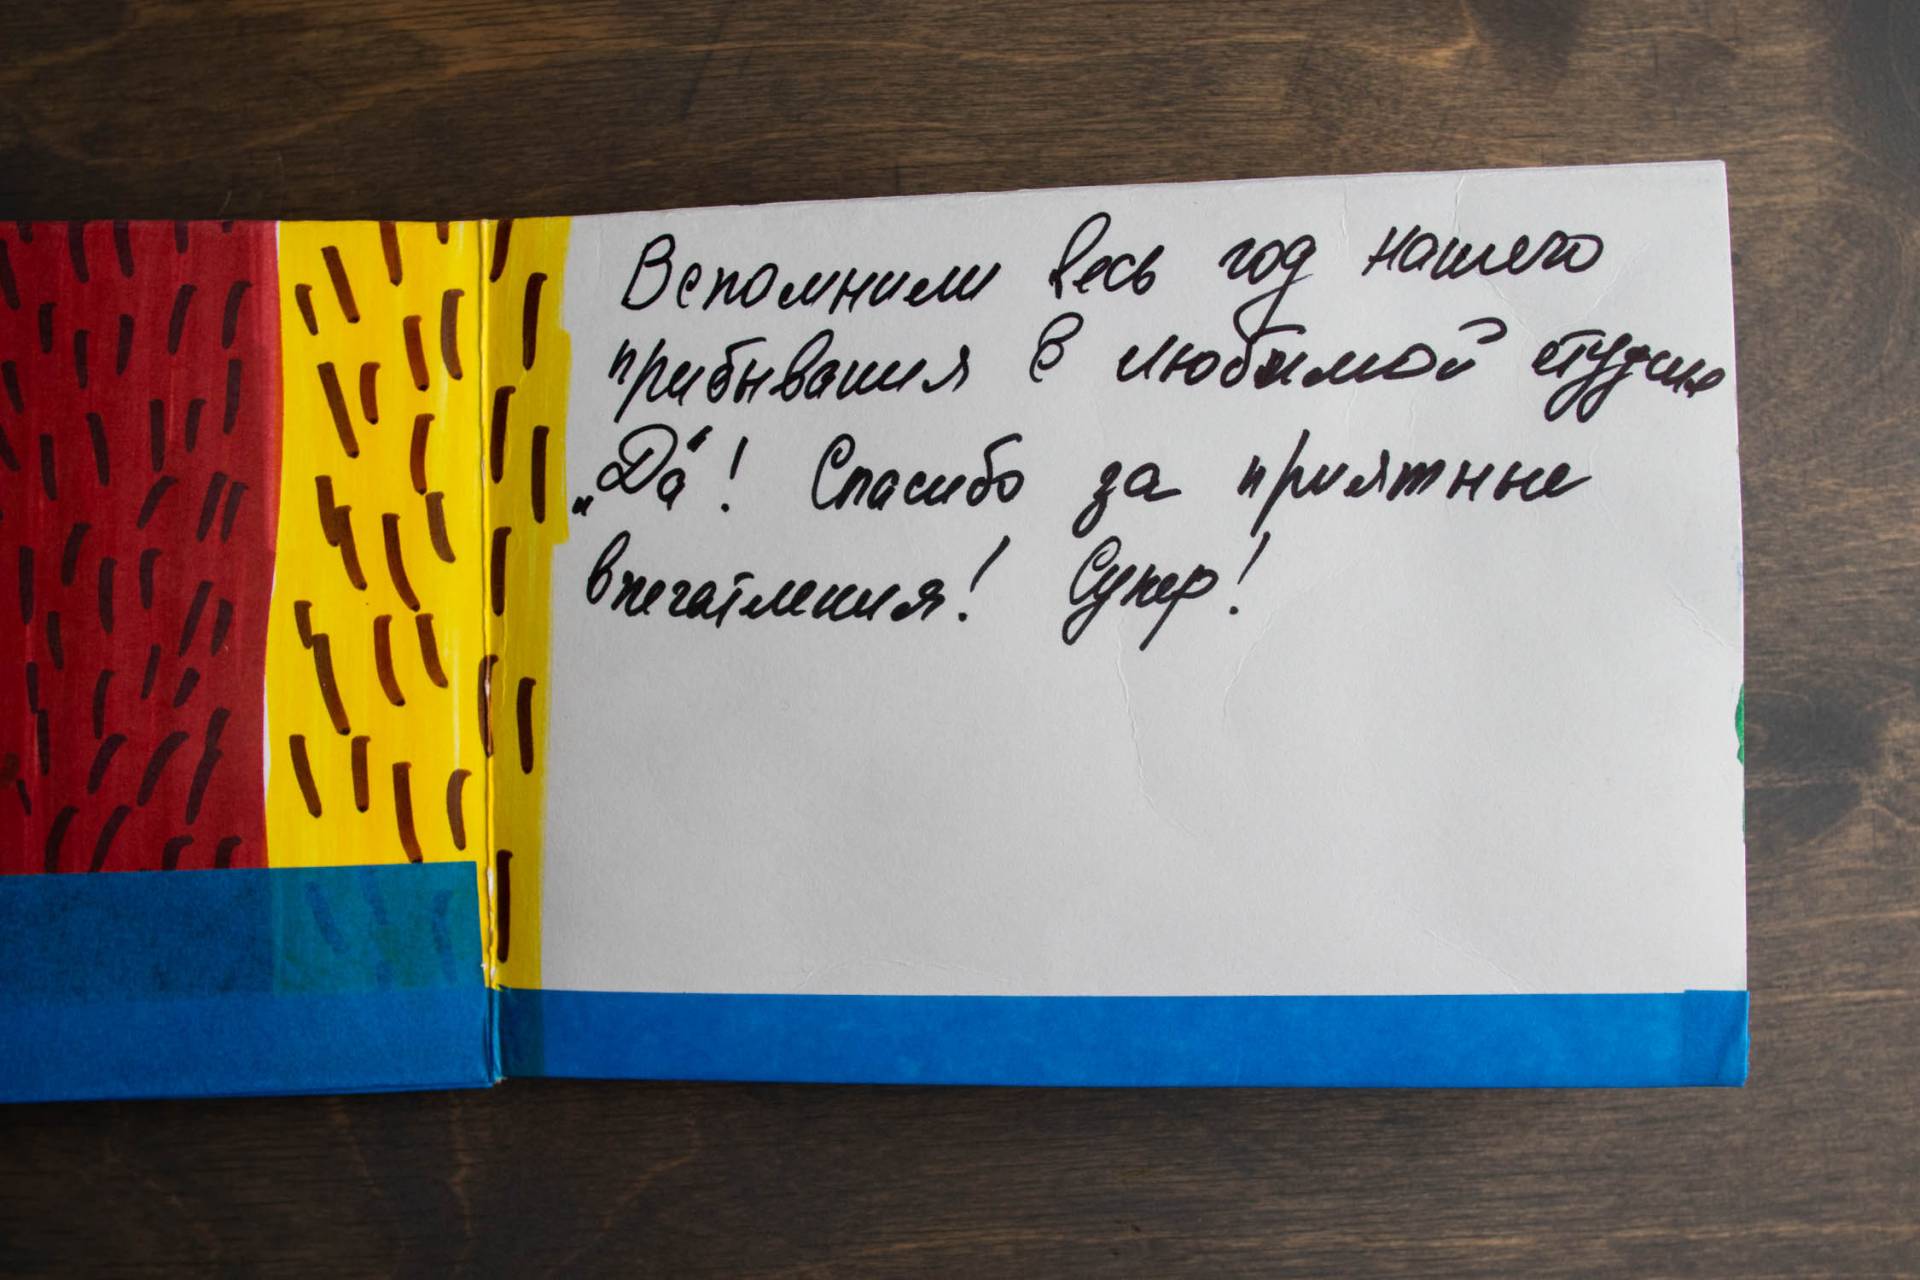 Вспомнили весь год нашего
прибывания в любимой студии
„Да“! Спасибо за приятные
впечатления! Супер!